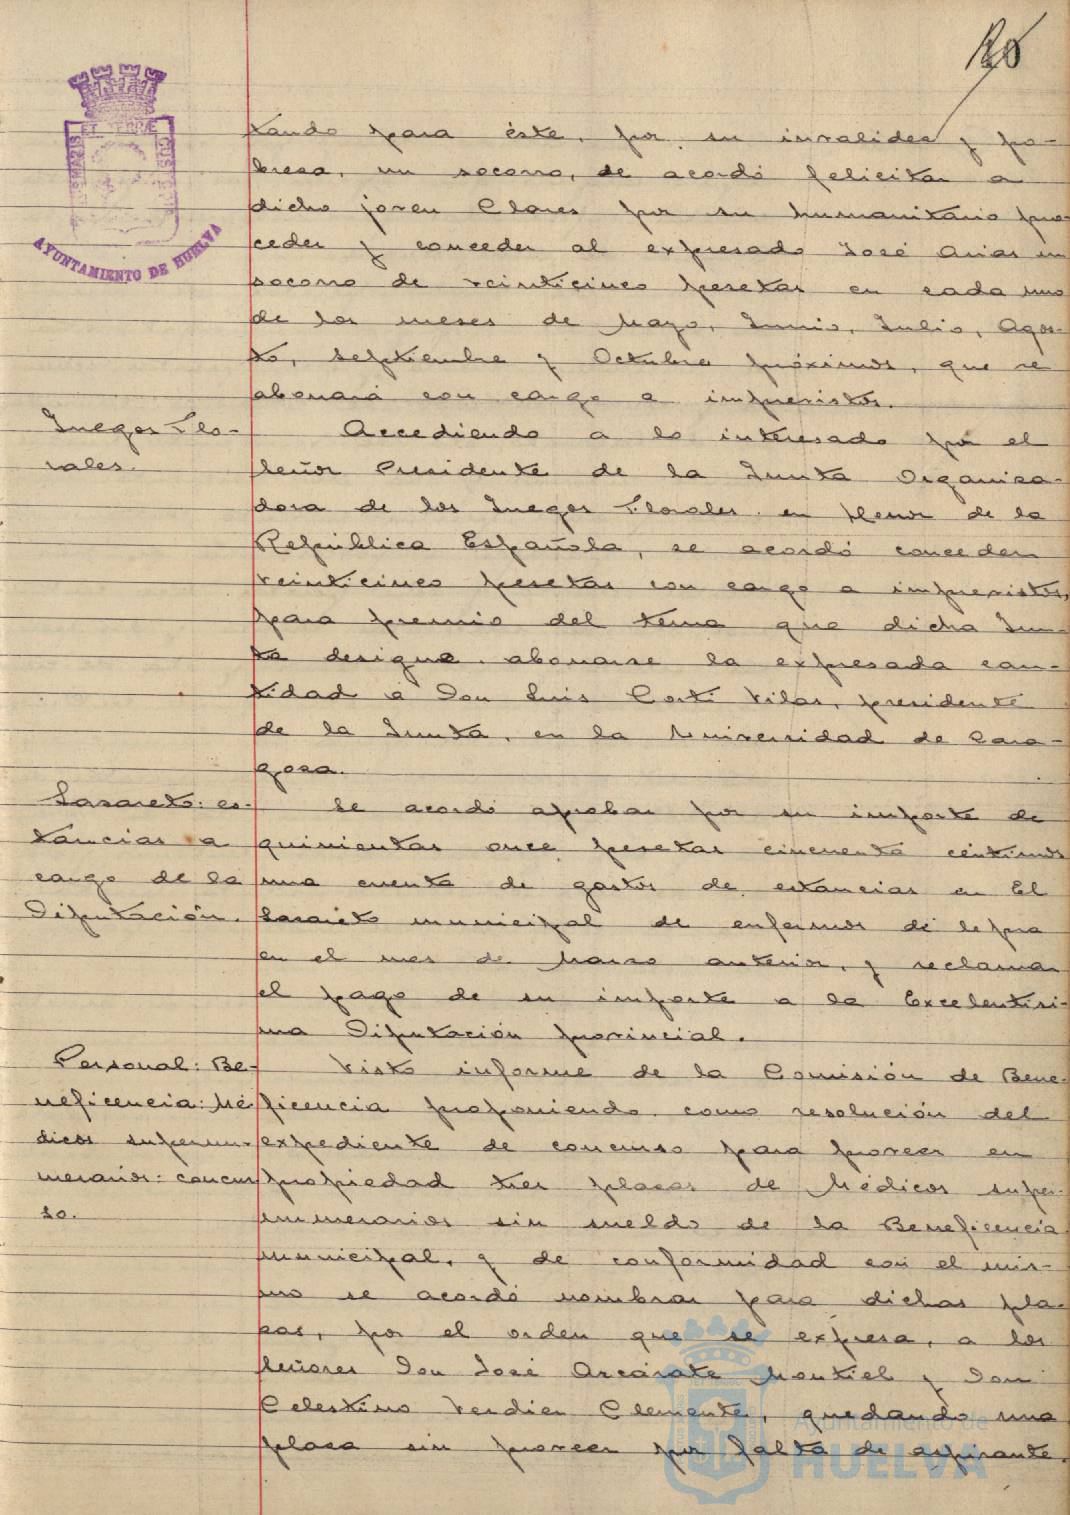 tando para éste, por su invalidez y po-
breza, un socorro, se acordó felicitar a
dicho joven Clares por su humanitario pro-
ceder y conceder al expresado José Arias un
socorro de veinticinco pesetas en cada uno
de los meses de Mayo, Junio, Julio, Agos-
to, Septiembre y Octubre próximos, que se
abonará con cargo a imprevistos.
Juegos Flo-
rales.
Accediendo a lo interesado por el
Señor Presidente de la Junta Organiza-
dora de los Juegos Florales en honor de la
República Española, se acordó conceder
veinticinco pesetas con cargo a imprevistos,
para premio del tema que dicha Jun-
ta designe abonarse la expresada can-
tidad a Don Luis Vilas, presidente
de la Junta, en la Universidad de Zara-
goza.
Lazareto: es-
tancias a
cargo de la
Diputación.
Se acordó aprobar por su importe de
quinientas once pesetas cincuenta céntimos
una cuenta de gastos de estancias en El
Lazareto municipal de enfermos de lepra
en el mes de Marzo anterior, y reclamar
el pago de su importe a la Excelentísi-
ma Diputación provincial.
Personal: Be-
neficencia: Mé-
dicos supernu-
merarios: concur-
so.
Visto informe de la Comisión de Bene-
ficencia proponiendo como resolución del
expediente de concurso para proveer en
propiedad tres plazas de Médicos super-
numerarios sin sueldo de la Beneficencia
municipal, y de conformidad con el mis-
mo se acordó nombrar para dichas pla-
zas, por el orden que se expresa, a los
Señores Don José Azcárate Montiel y Don
Celestino Verdier Clemente, quedando una
plaza sin proveer por falta de aspirante.
AYUNTAMIENTO DE HUELVA
Ayuntamiento de
HUELVA